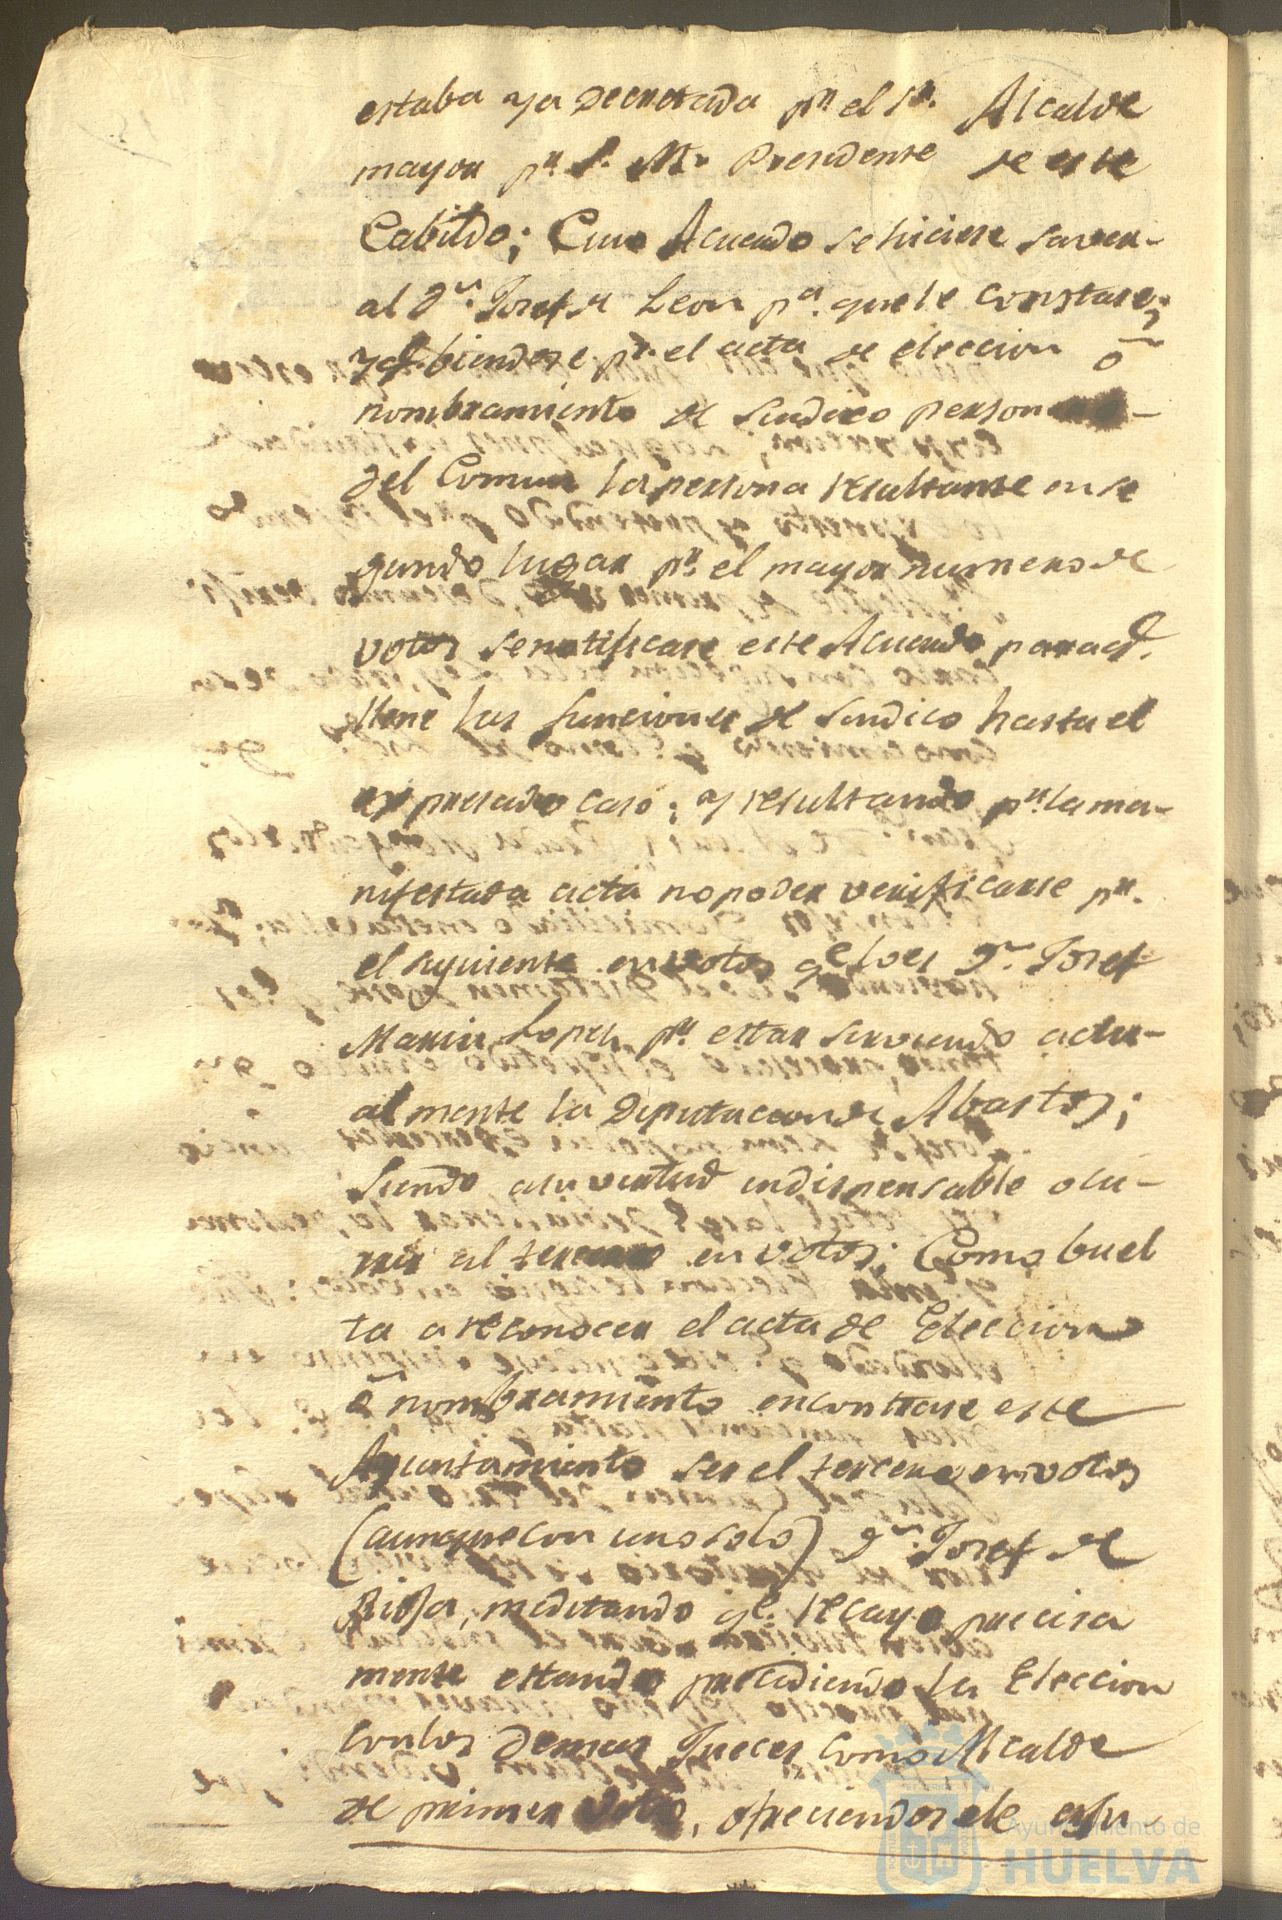 estaba ya decretada pr. el Sr. Alcalde
mayor pr. S. M. Presidente de este
Cabildo; Cuio Acuerdo se hiciese saver-
al Dn. Josef de Leon pa. que le constase;
y debiendose pr. el acta de eleccion ó
nombramiento de Sindico person
del Comun la persona resultante en se
gundo lugar pr. el mayor numero de
votos se notificase este Acuerdo para qe.
llene las funciones de Sindico hasta el
expresado caso; y resultando pr. la ma-
nifestada acta no poder verificarse pr.
el siguiente en votos qe. lo es Dn. Josef
Marin Lopez, pr. estar sirviendo actu-
almente la Diputacion de Abastos;
Siendo a su virtud indispensable ocu-
rrir al tercero en votos; Como buel
ta a reconocer el acta de Eleccion
ó nombramiento encontrase este
Ayuntamiento ser el tercero en votos
(aunque con uno solo) Dn. Josef de
meditando qe. recayo precisa
mente estando precidiendo la Eleccion
con los demas Jueces como Alcalde
de primer voto, ofreciendosele a su
Ayuntamiento de
HUELVA